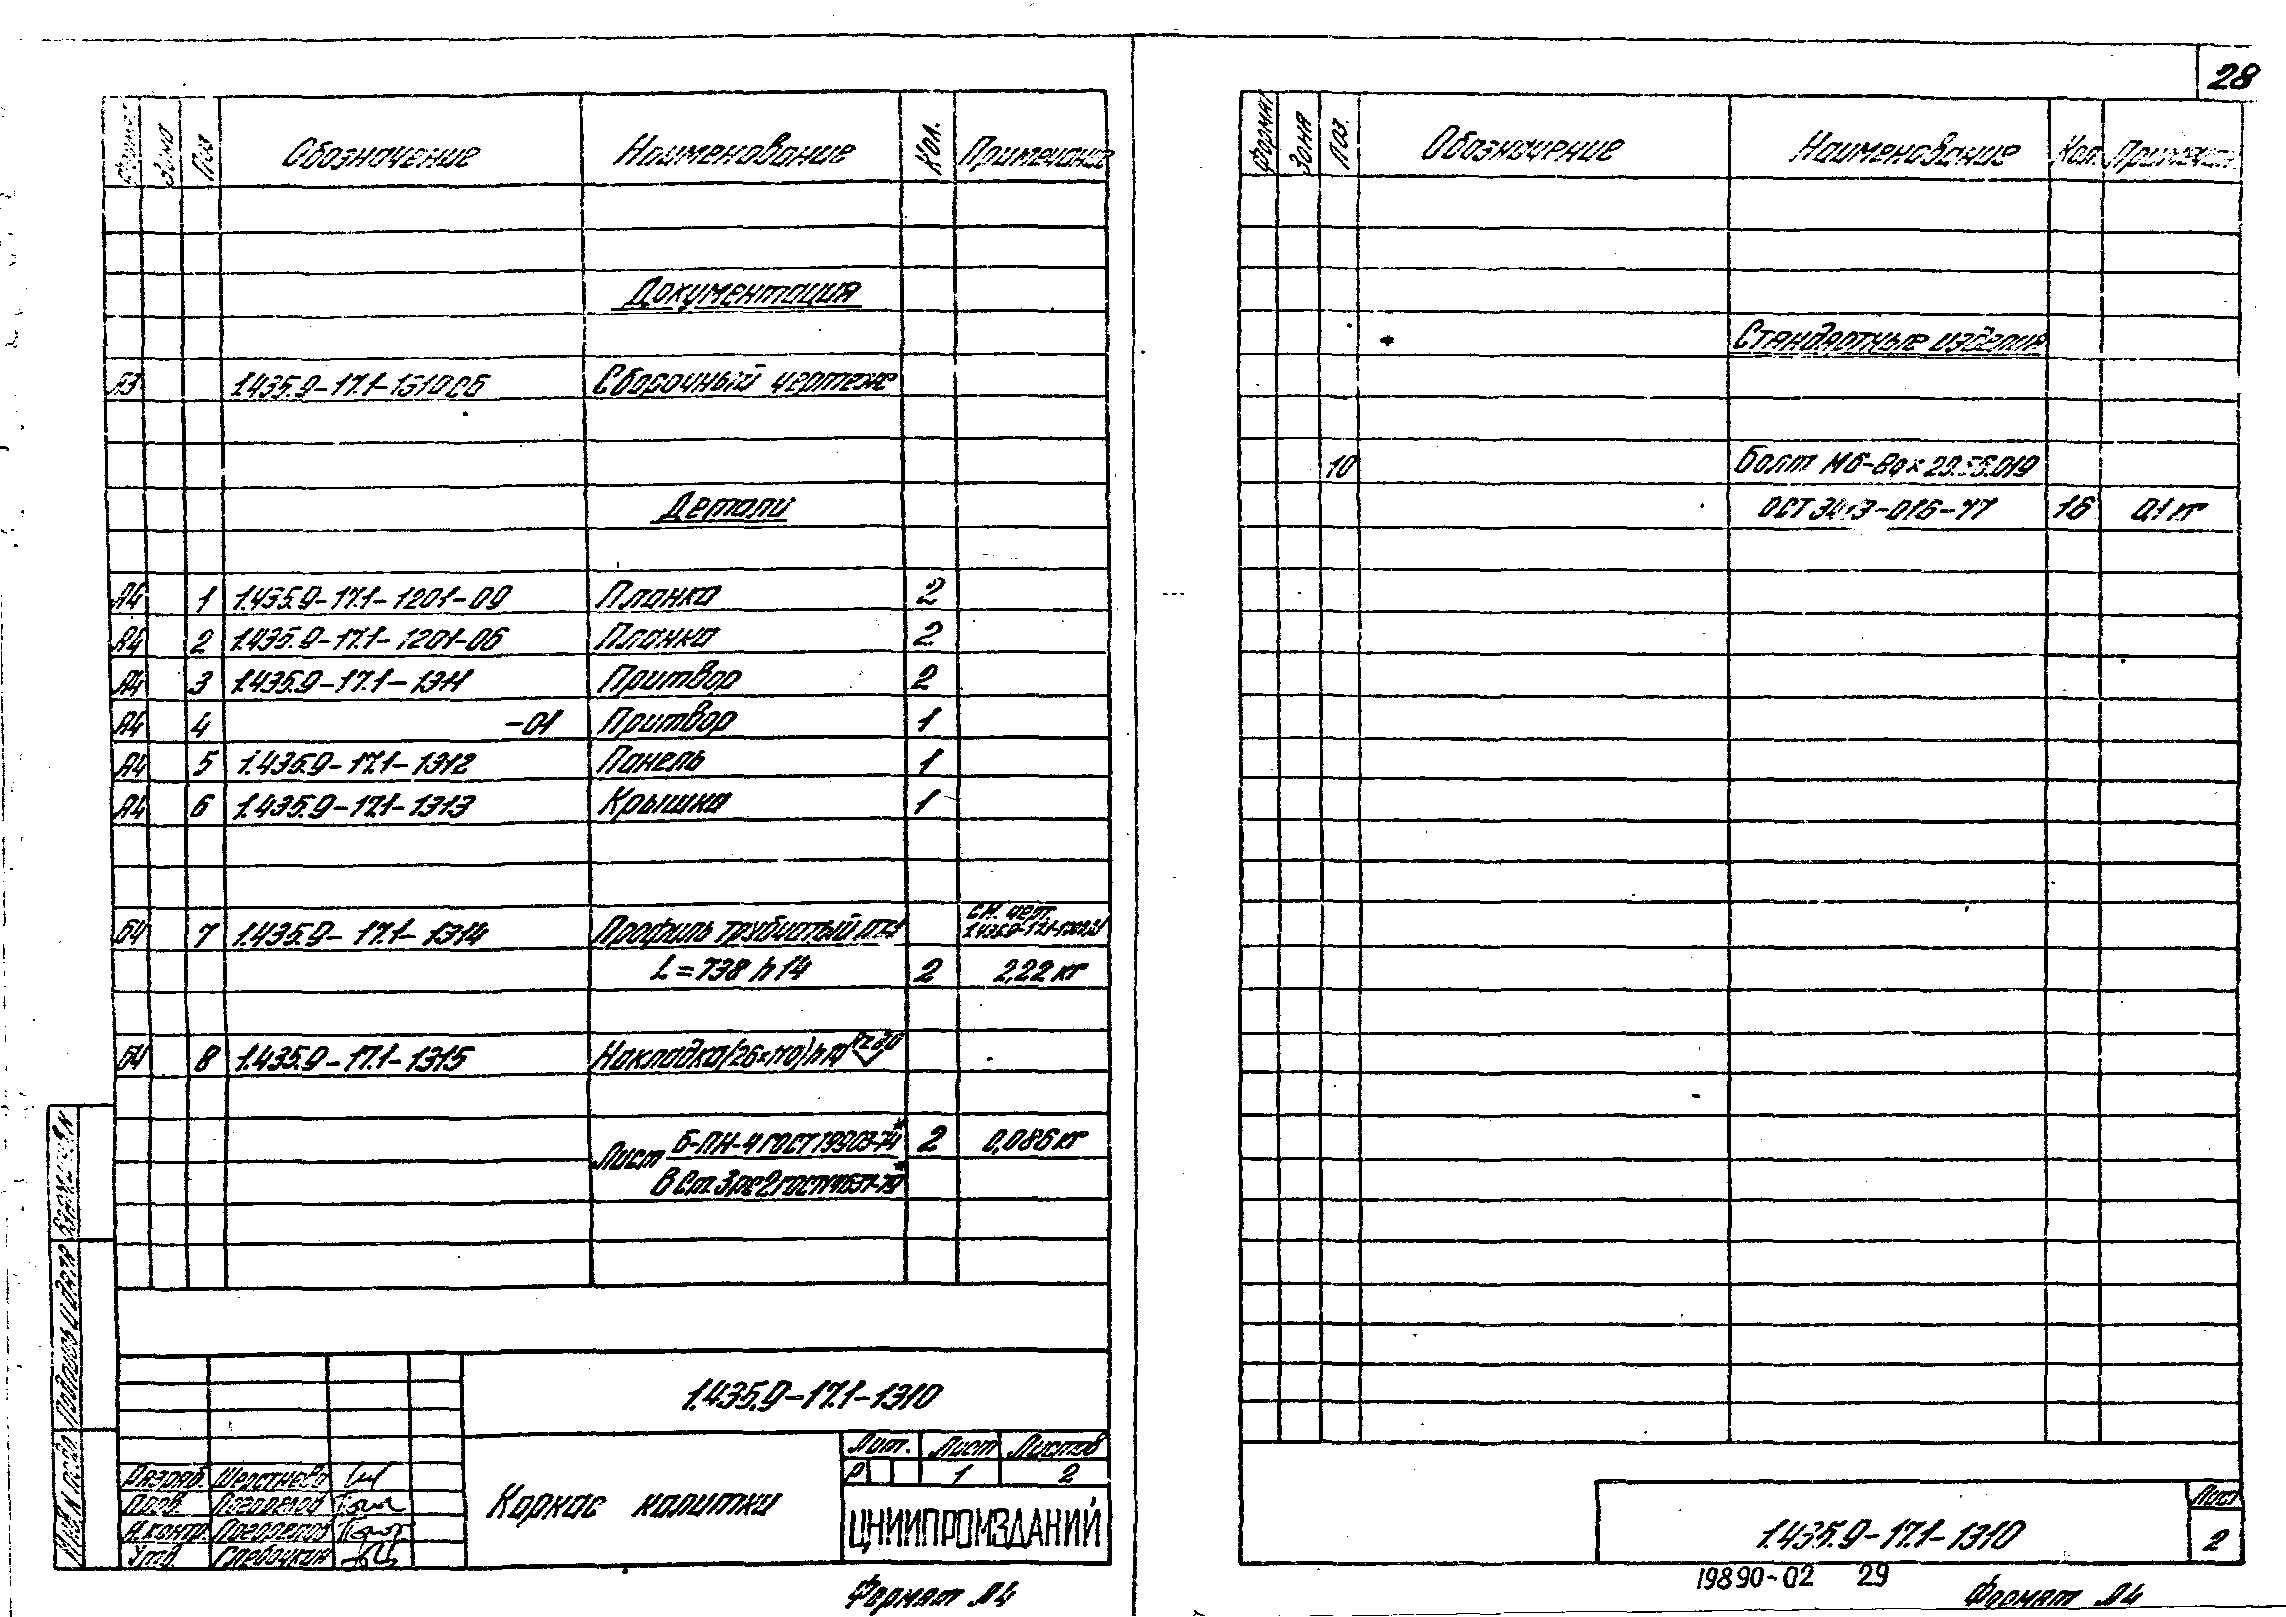 28
Формат Зона Поз Обозначение Наименование Кол. Примечание
Документация
А3 1.435.9-17.1-1310СБ Сборочный чертеж
Детали
А4 1 1.435.9-17.1-1201-09 Планка 2
А4 2 1.435.9-17.1-1201-06 Планка 2
А4 3 1.435.9-17.1-1311 Притвор 2
А4 4 -01 Притвор 1
А4 5 1.435.9-17.1-1312 Панель 1
А4 6 1.435.9-17.1-1313 Крышка 1
Б4 7 1.435.9-17.1-1314 Профиль трубчатый см. черт.
L=738 h14 2 2,22 кг
Б4 8 1.435.9-17.1-1315 Накладка(26×110)h14
Лист Б-ПН-4 ГОСТ 19903-74* 2 0,086 кг
В Ст 3 пс 2 ГОСТ 14637-79*
Подпись и дата
1.435.9-17.1-1310
Каркас калитки
Лит. Лист Листов
Р 1 2
ЦНИИПРОМЗДАНИЙ
Разраб. Шерстнева
Пров. Погорелов
Н.контр. Погорелов
Утв.
Формат А4
Формат Зона Поз. Обозначение Наименование Кол. Примечан.
Стандартные изделия
10 Болт М6-8g×20.56.019
ОСТ 34-13-016-77 16 0,1 кг
1.435.9-17.1-1310
Лист
2
19890-02 29
Формат А4